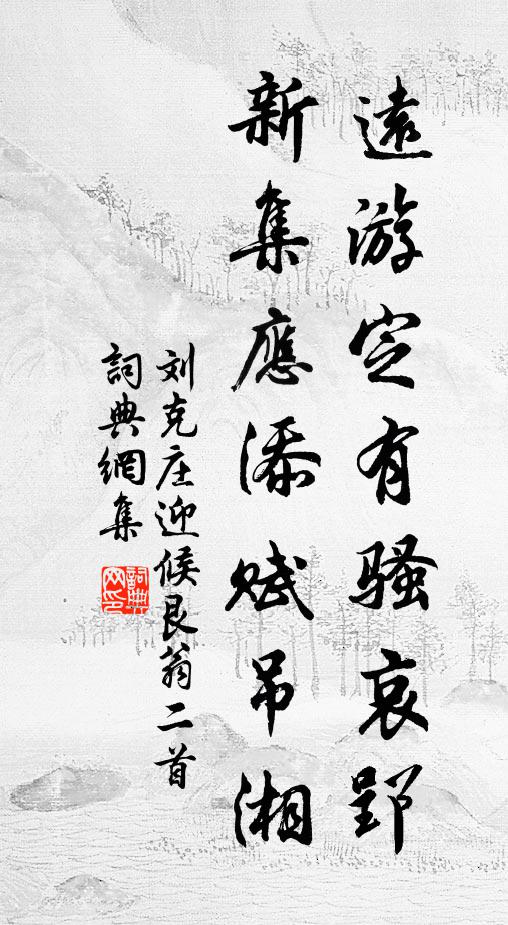 遠游定有騷哀郢
新集應添賦吊湘
刘克庄迎候艮翁二首
詞典網集
詞典网印